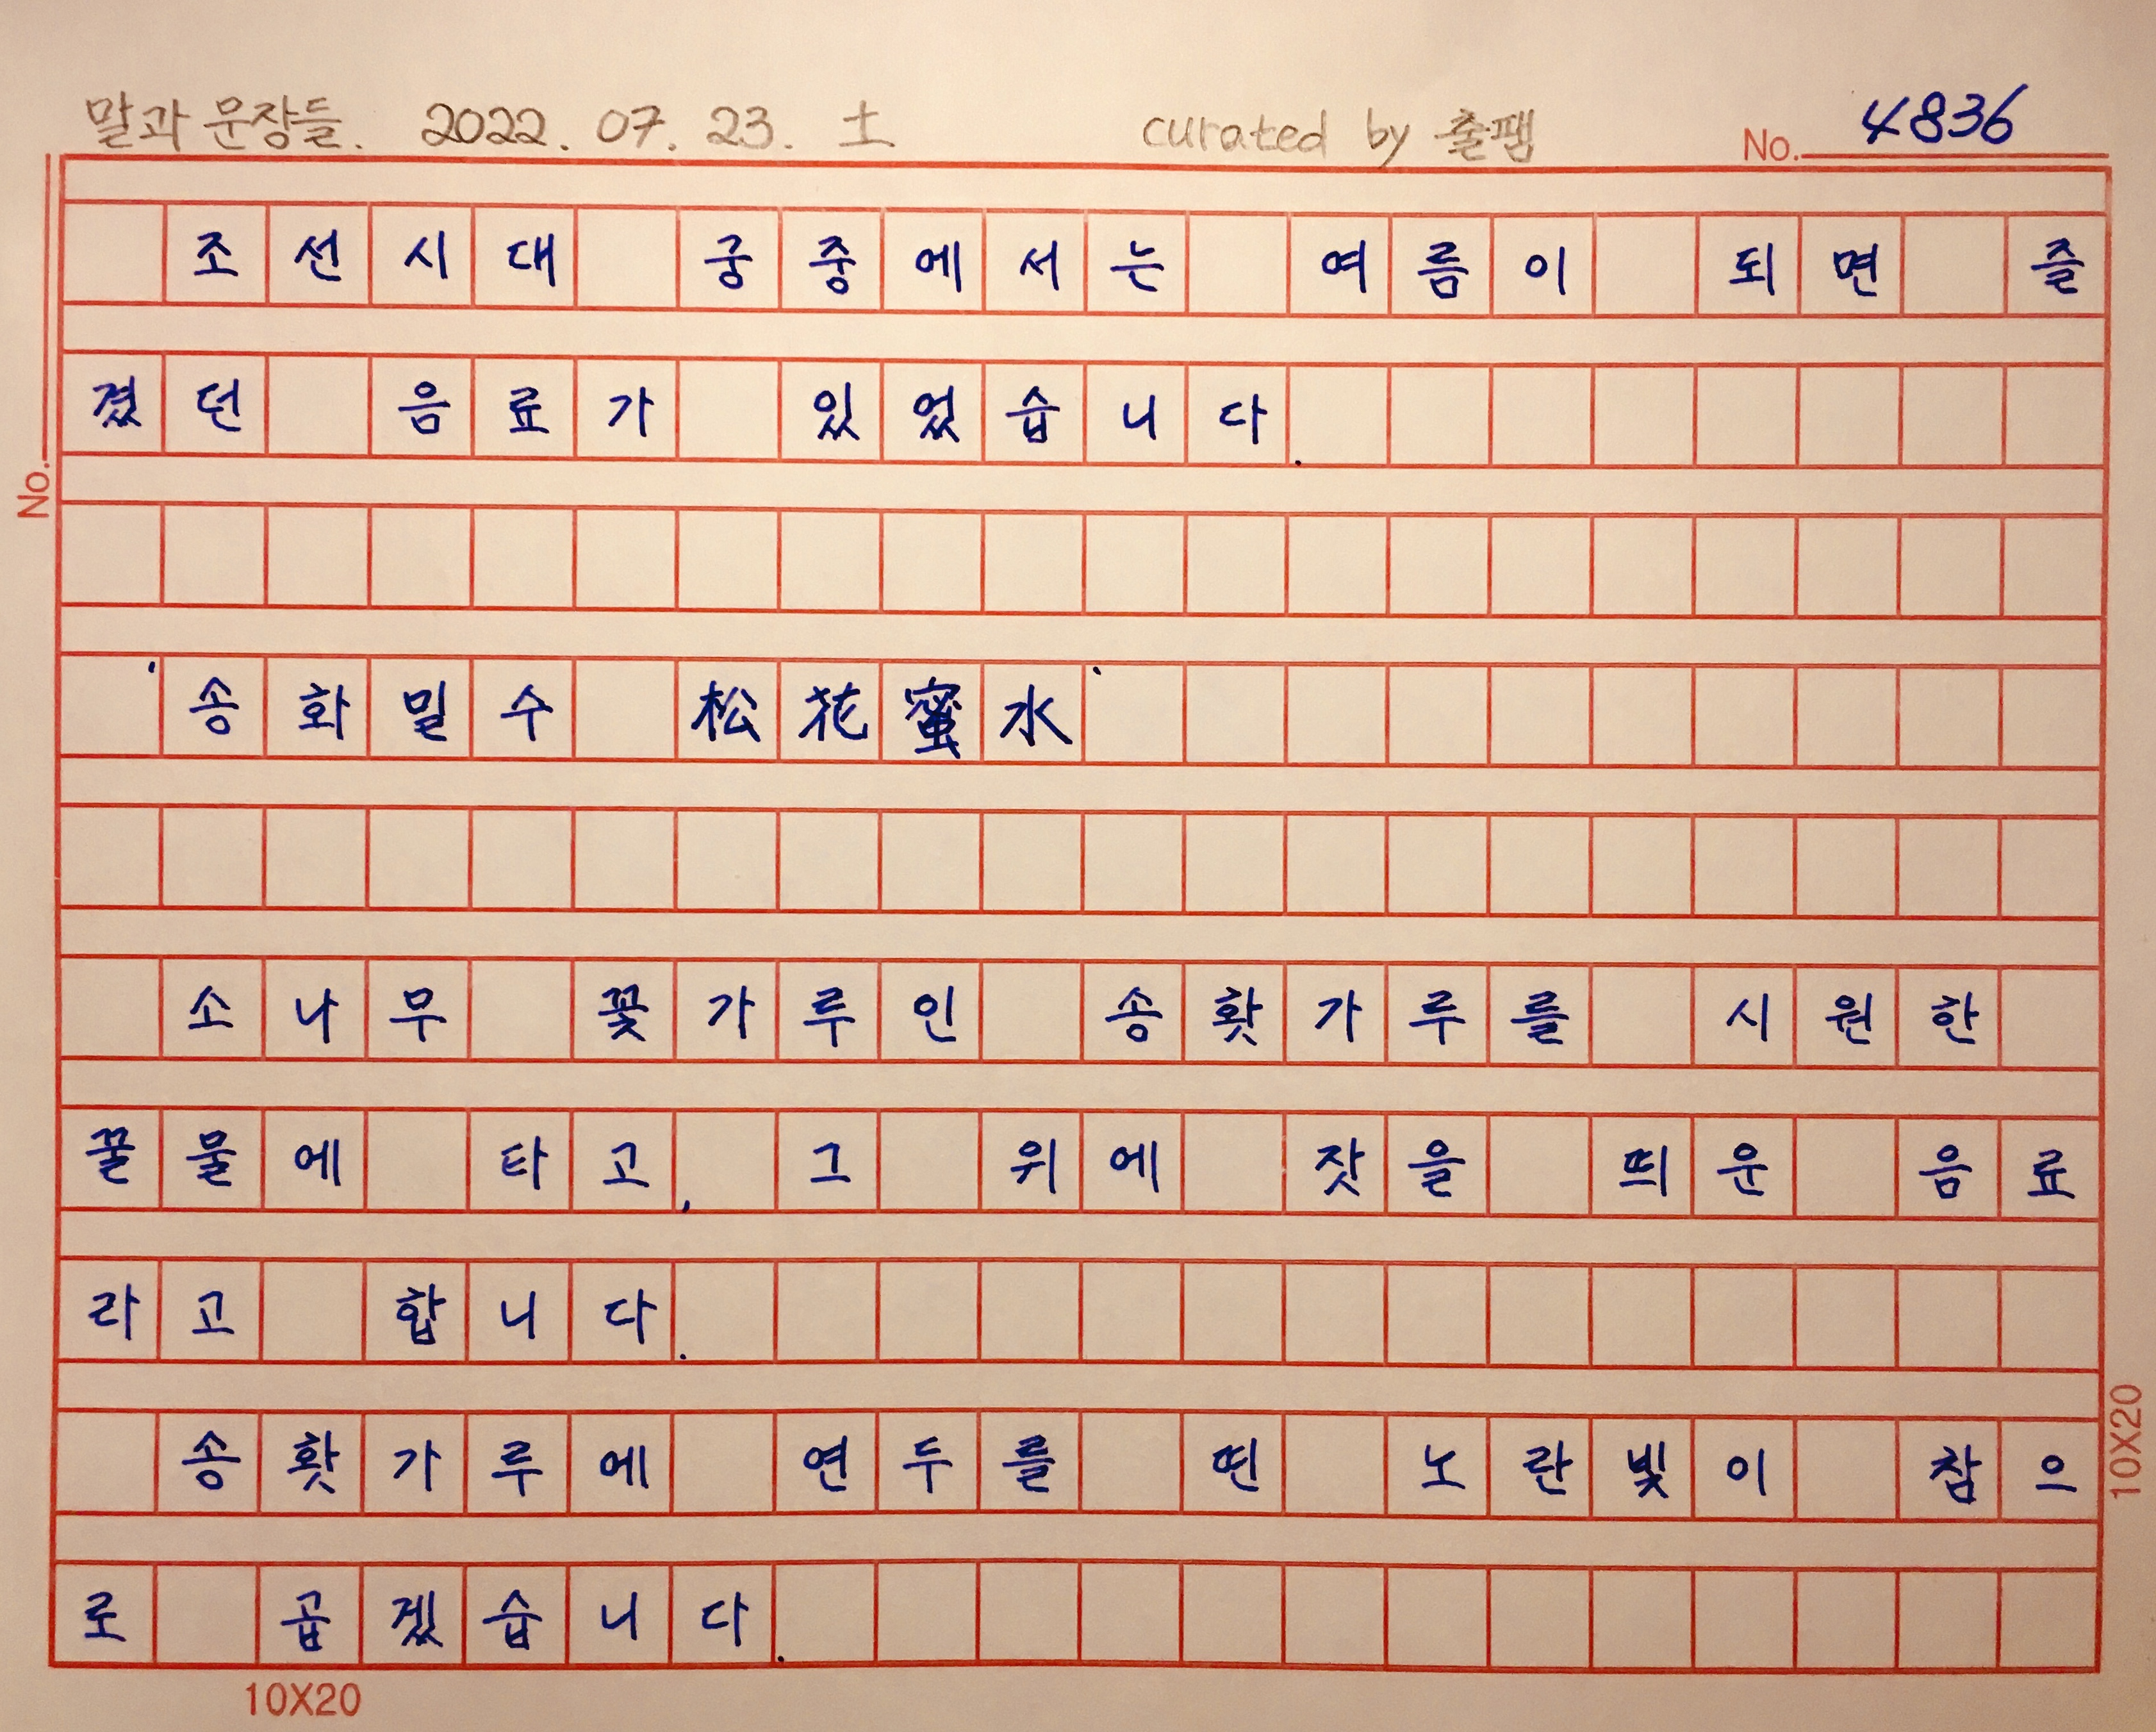 말과 문장들. 2022. 07. 23. 土 curated by 출팸 No. 4836
조선시대 궁중에서는 여름이 되면 즐
겼던 음료가 있었습니다.
No.
'송화밀수 松花蜜水'
소나무 꽃가루인 송홧가루를 시원한
꿀물에 타고, 그 위에 잣을 띄운 음료
라고 합니다.
송홧가루에 연두를 띤 노란빛이 참으
로 곱겠습니다.
10X20
10X20